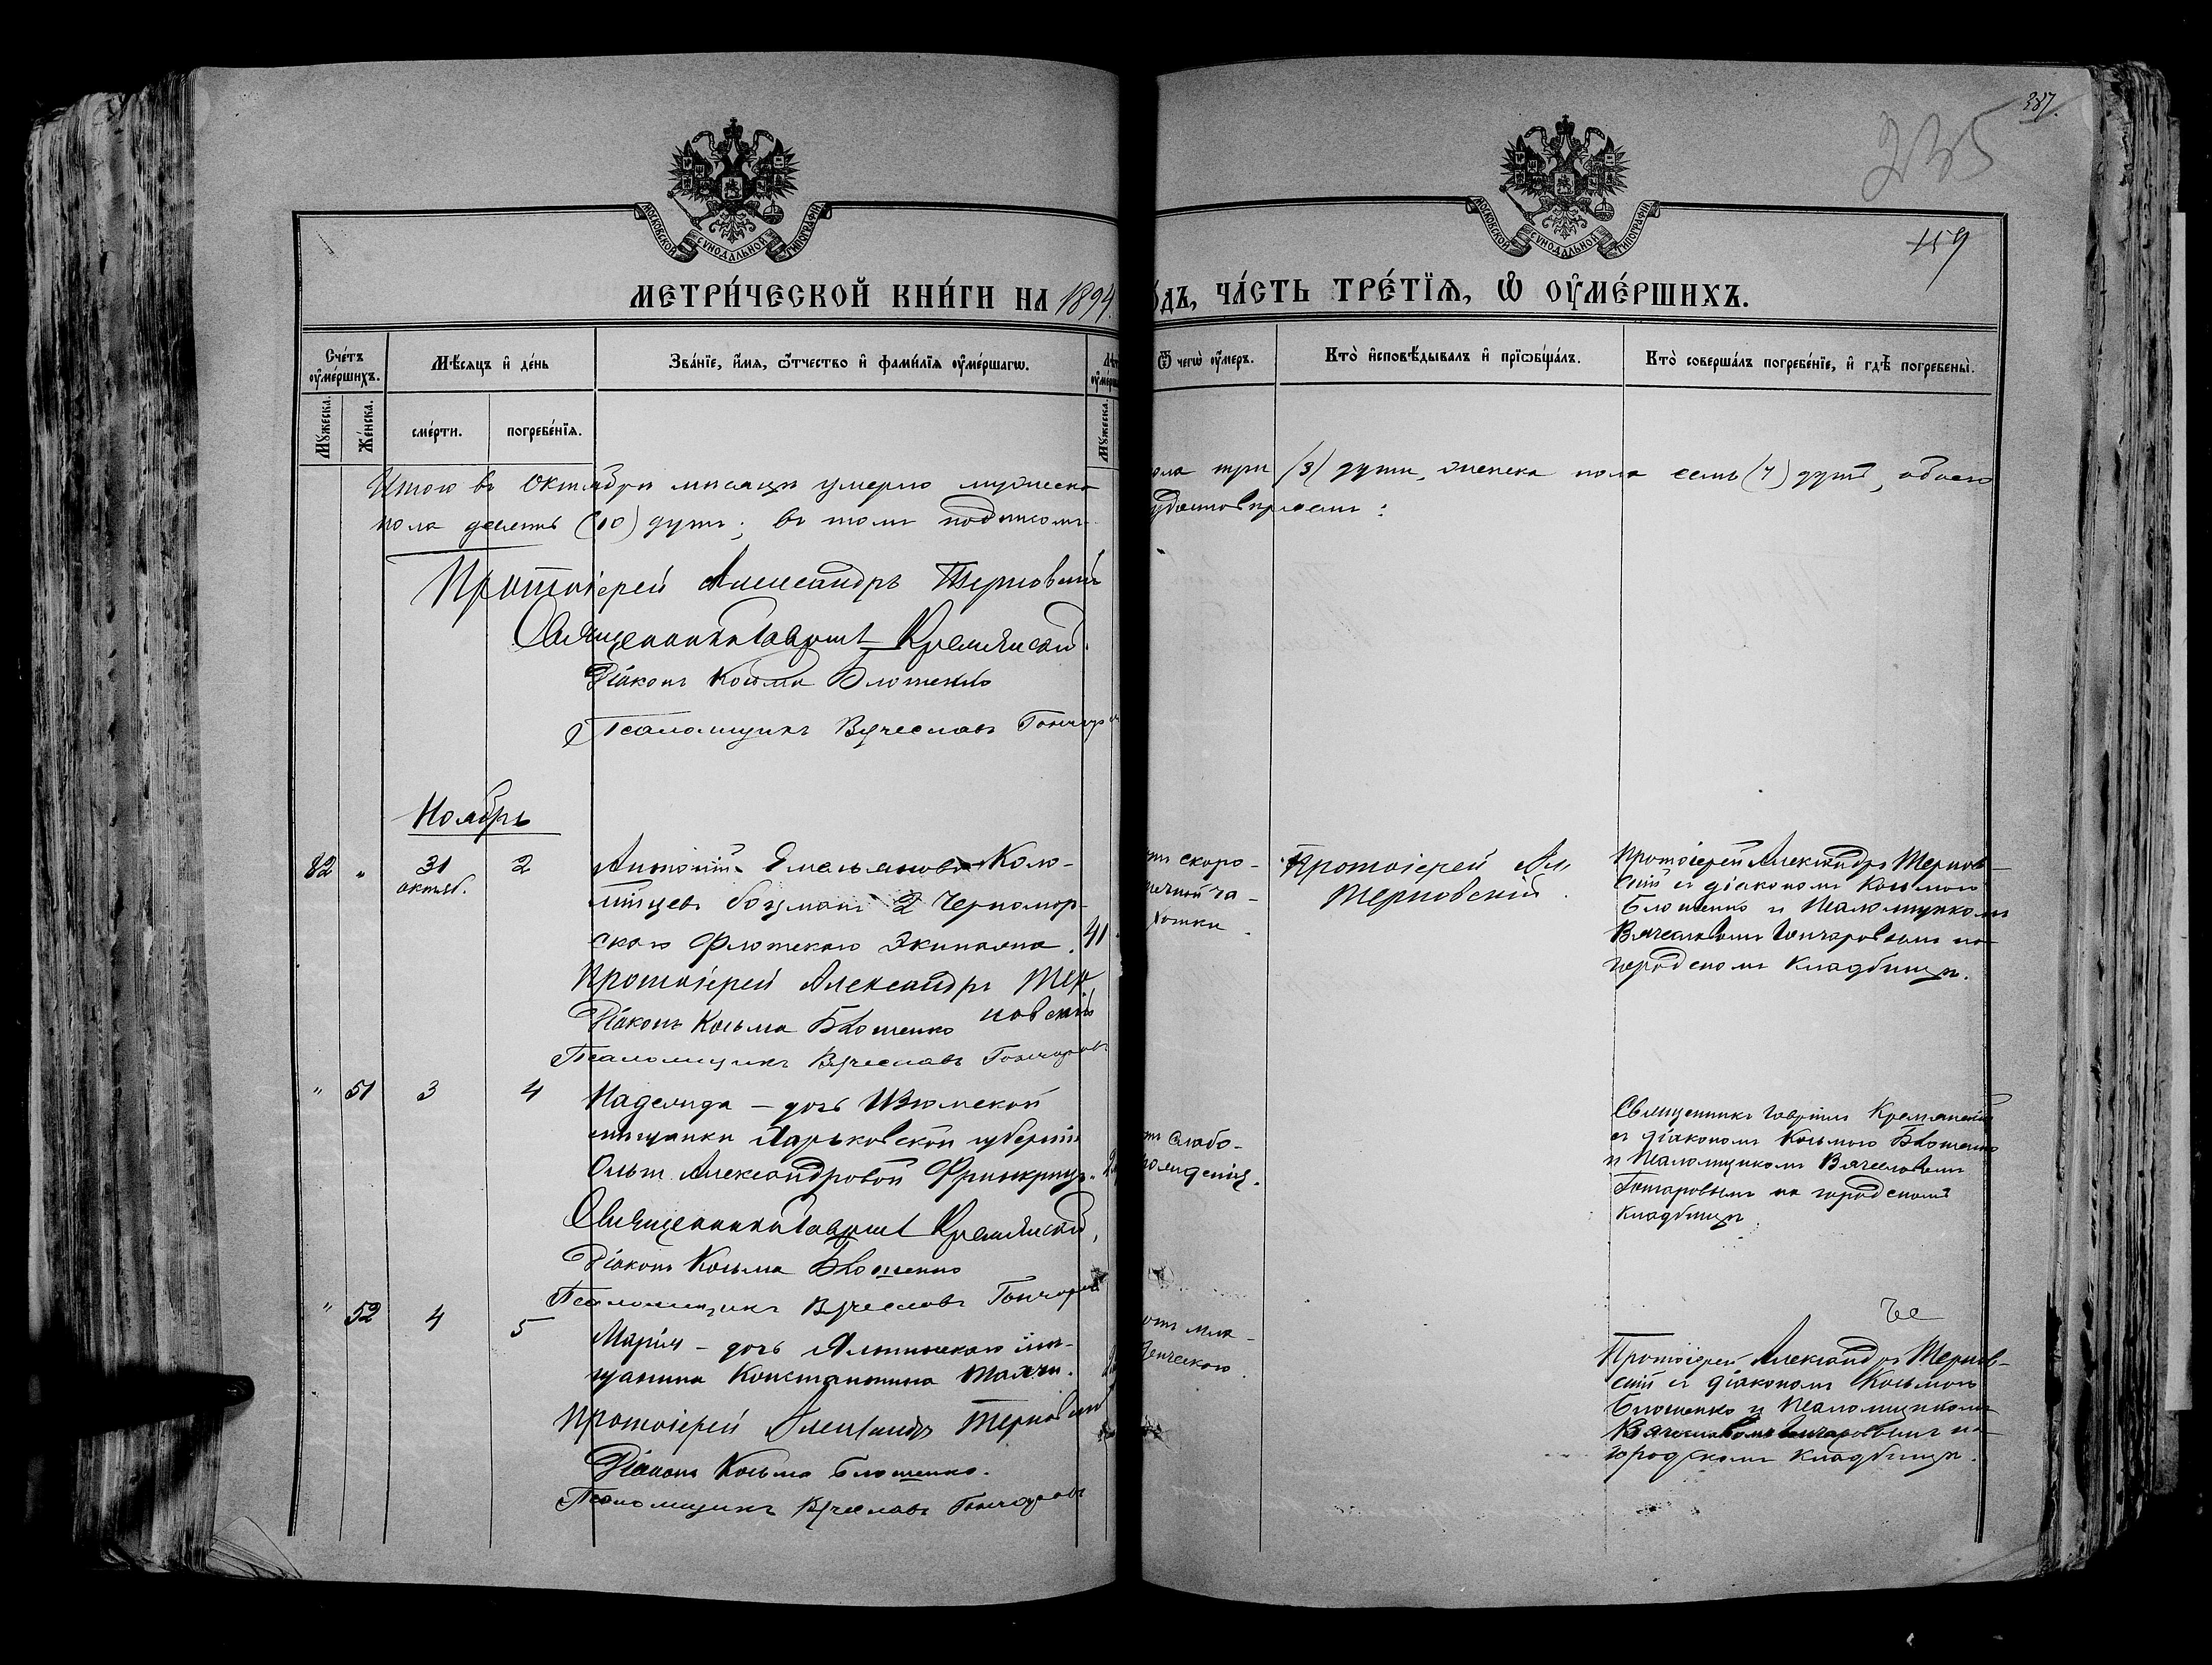 387.
235
159
МОСКОВСКОЙ СѴНОДАЛЬНОЙ ТИПОГРАФІИ
МОСКОВСКОЙ СѴНОДАЛЬНОЙ ТИПОГРАФІИ
МЕТРИ́ЧЕСКОЙ КНИ́ГИ НА 1894
ДЪ, ЧА́СТЬ ТРЕ́ТІЯ, Ѡ ОУМЕ́РШИХЪ.
Сче́тъ оуме́ршихъ.
Мѣ́сяцъ и де́нь
Зва́ніе, и́мя, ѻ́тчество и фами́лія оуме́ршагѡ.
Ѿ чегѡ̀ оу́меръ.
Кто̀ исповѣ́дывалъ и прїѡбща́лъ.
Кто̀ соверша́лъ погребе́ніе, и гдѣ̀ погребены̀.
Му́жеска.
Же́нска.
сме́рти.
погребе́нія.
Му́жеска.
Итого въ Октябрѣ мѣсяцѣ умерло мужеска
пола три (3) души, женска пола семь (7) душъ, обоего
пола десять (10) душъ; въ томъ подписомъ
удостовѣряемъ:
Протоіерей Александръ Терновскій
Священникъ Гавріилъ Кремянскій
Діаконъ Косьма Блошенко
Псаломщикъ Вячеславъ Гончаро
Ноябрь
82 " 31 октяб. 2
Антоній Емельяновъ Коло-
мійцевъ боцманъ 2 Черномор-
скаго Флотскаго Экипажа. 41
Протоіерей Александръ Тер
новскій
Діаконъ Косьма Блошенко
Псаломщикъ Вячеславъ Гончаровъ
скоро-
течной ча-
хотки.
Протоіерей Ал.
Терновскій.
Протоіерей Александръ Тернов-
скій съ діакономъ Косьмою
Блошенко и Псаломщикомъ
Вячеславомъ Гончаровымъ на
городскомъ кладбищѣ.
" 51 3 4
Надежда – дочь Изюмской
мѣщанки Харьковской губерніи
Ольги Александровой
Священникъ Гавріилъ Кремянскій,
Діаконъ Косьма Блошенко
Псаломщикъ Вячеславъ Гончаровъ
слабо-
рожденія.
Священникъ Гавріилъ Кремянскій
съ діакономъ Косьмою Блошенко
и Псаломщикомъ Вячеславомъ
Гончаровымъ на городскомъ
кладбищѣ.
" 52 4 5
Марія – дочь Ялтинскаго мѣ-
щанина Константина
Протоіерей Александръ Терновскій
Діаконъ Косьма Блошенко.
Псаломщикъ Вячеславъ Гончаровъ
отъ мла-
денческой
Протоіерей Александръ Тернов-
скій съ діакономъ Косьмою
Блошенко и Псаломщикомъ
Вячеславомъ Гончаровымъ на
городскомъ кладбищѣ.